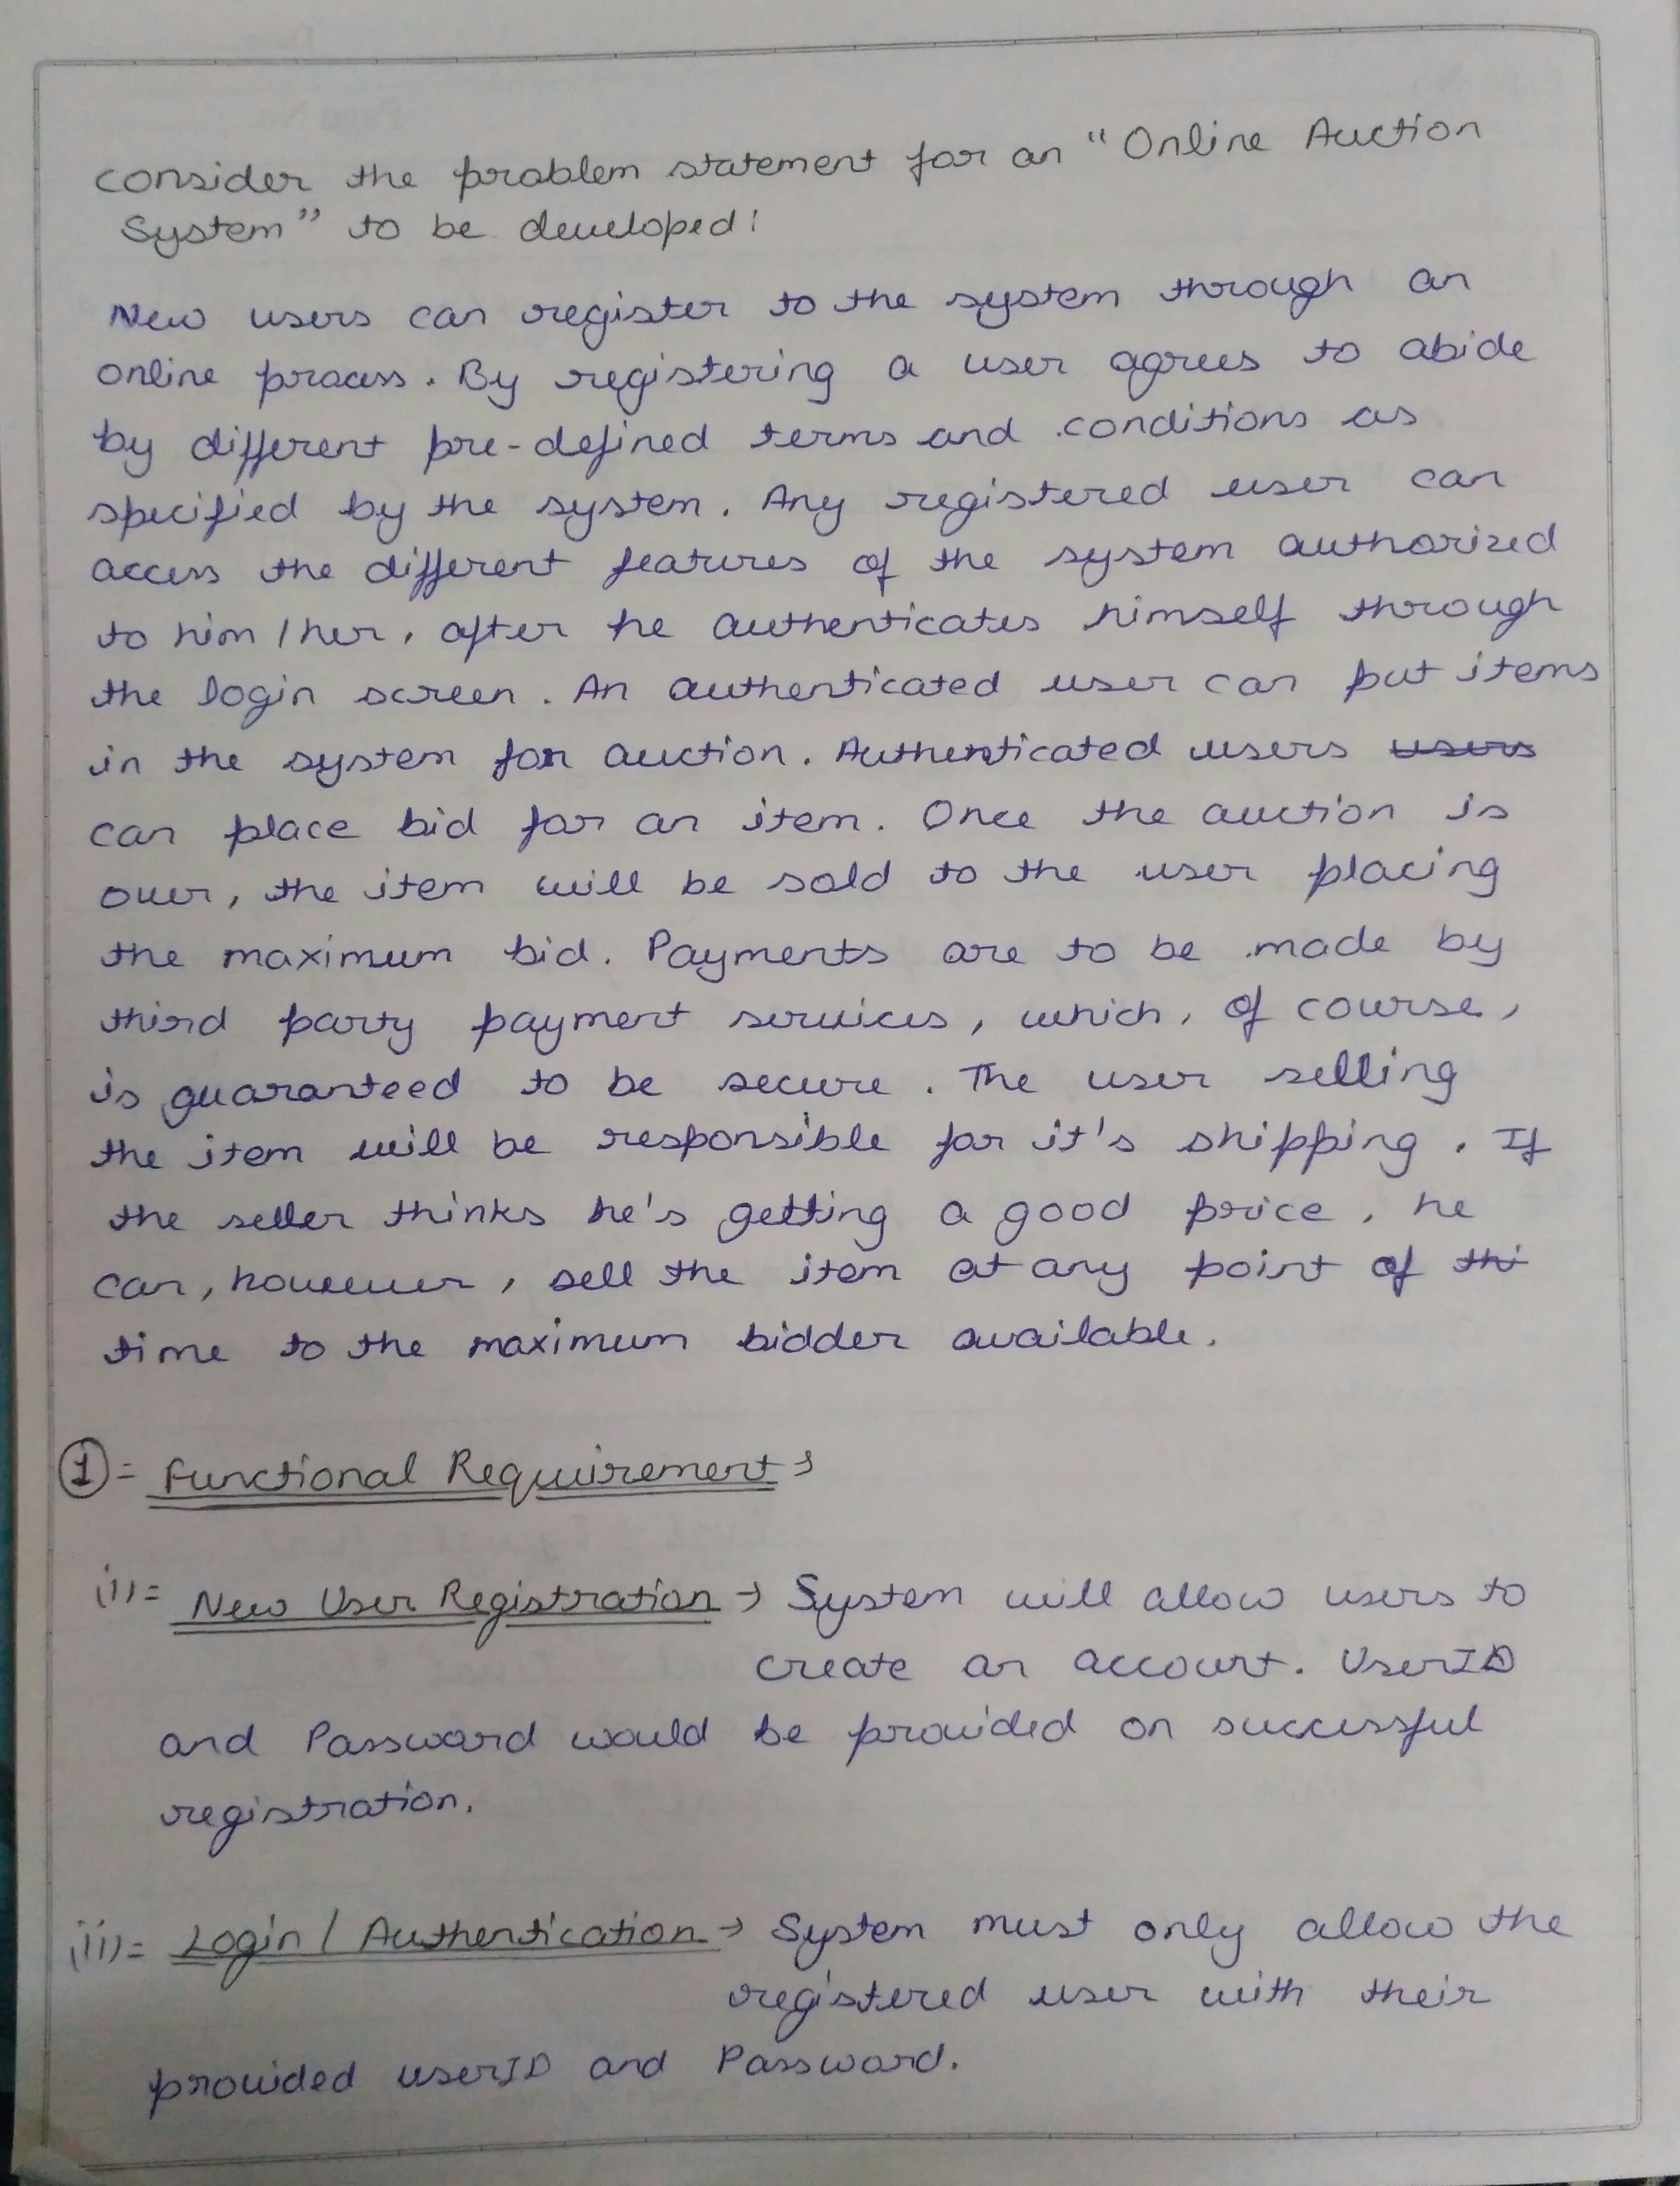 consider the problem statement for an "Online Auction
System" to be developed:
New users can register to the system through an
online process. By registering a user agrees to abide
by different pre-defined terms and conditions as
specified by the system. Any registered user can
access the different features of the system authorized
to him/her, after he authenticates himself through
the login screen. An authenticated user can put items
in the system for auction. Authenticated users users
can place bid for an item. Once the auction is
over, the item will be sold to the user placing
the maximum bid. Payments are to be made by
third party payment services, which, of course,
is guaranteed to be secure. The user selling
the item will be responsible for it's shipping. If
the seller thinks he's getting a good price, he
can, however, sell the item at any point of thi
time to the maximum bidder available.
1 = Functional Requirement →
(i) = New User Registration → System will allow users to
create an account. UserID
and Password would be provided on successful
registration.
(ii) = Login / Authentication → System must only allow the
registered user with their
provided userID and Password.